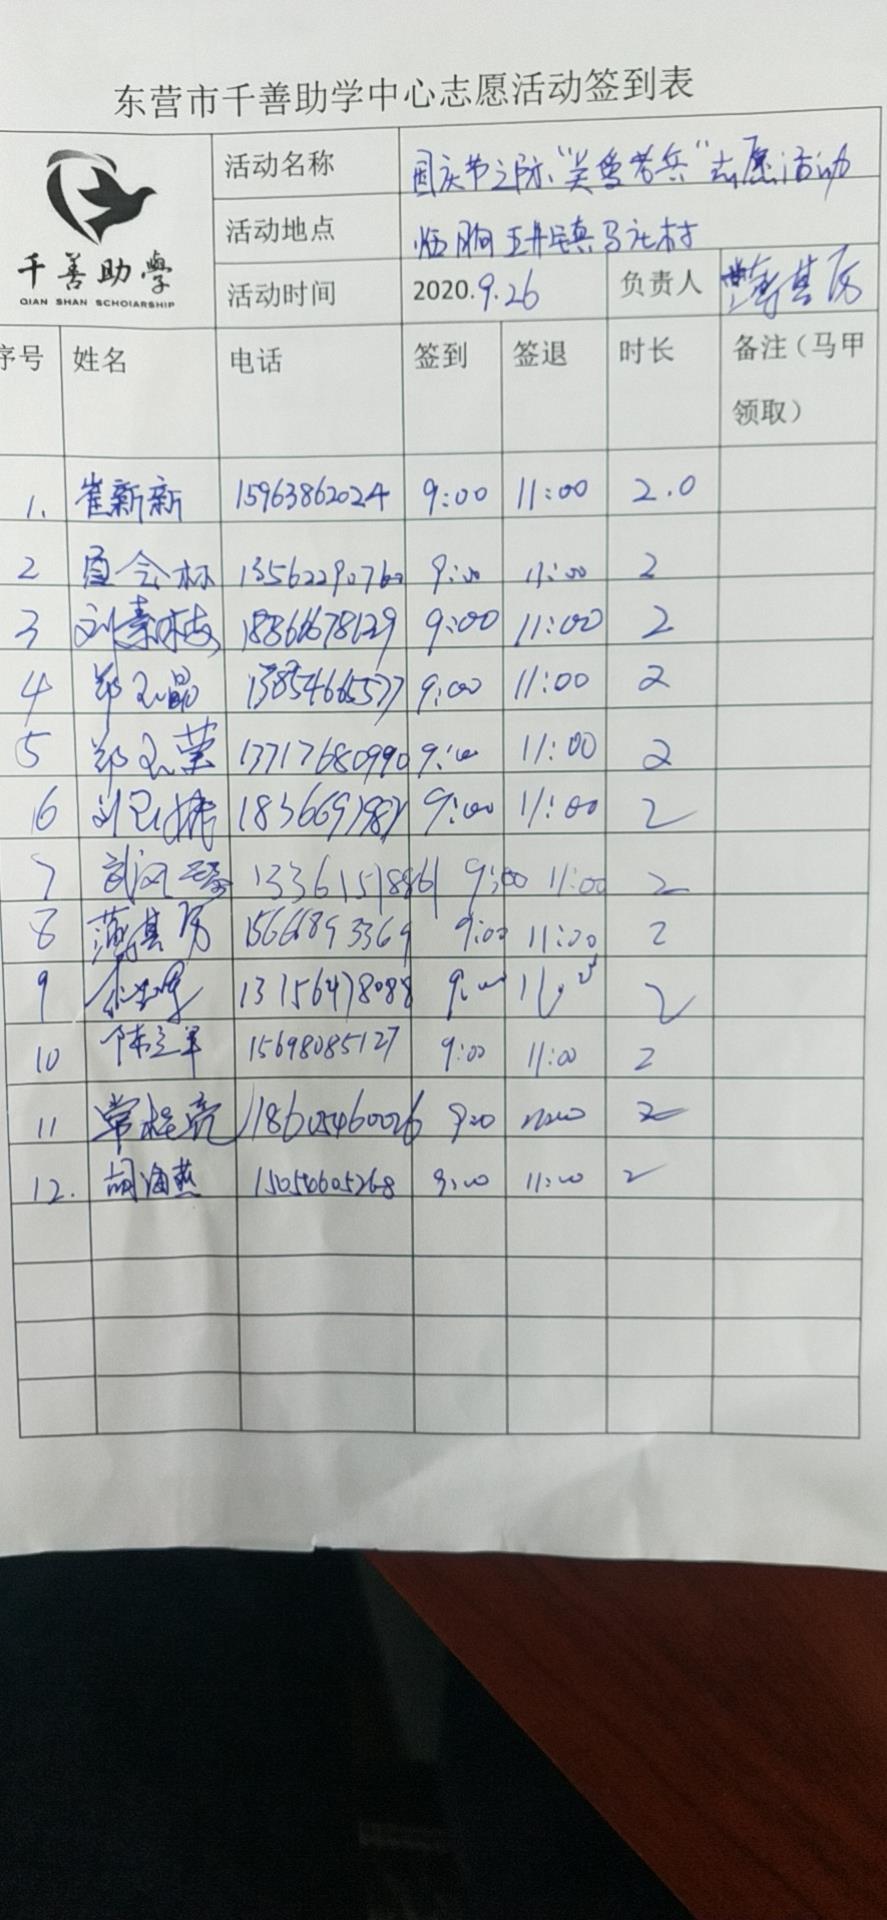 东营市千善助学中心志愿活动签到表
千善助學
QIAN SHAN SCHOIARSHIP
活动名称 国庆节之际“关爱老兵”志愿活动
活动地点 临朐五井镇马庄村
活动时间 2020.9.26 负责人 薄其厉
序号 姓名 电话 签到 签退 时长 备注（马甲
领取）
1. 崔新新 15963862024 9:00 11:00 2.0
2 会林 13562290760 9:00 11:00 2
3 刘素梅 18866678129 9:00 11:00 2
4 郑玉晶 13854665577 9:00 11:00 2
5 郑玉荣 13717680990 9:00 11:00 2
6 刘 9:00 11:00 2
7 武 13361518861 9:00 11:00 2
8 薄其厉 15666893369 9:00 11:00 2
9 13156478088 9:00 2
10 陈立军 15698085127 9:00 11:00 2
11 常 18605460026 9:00 11:00 2
12. 胡海燕 15050605268 9:00 11:00 2